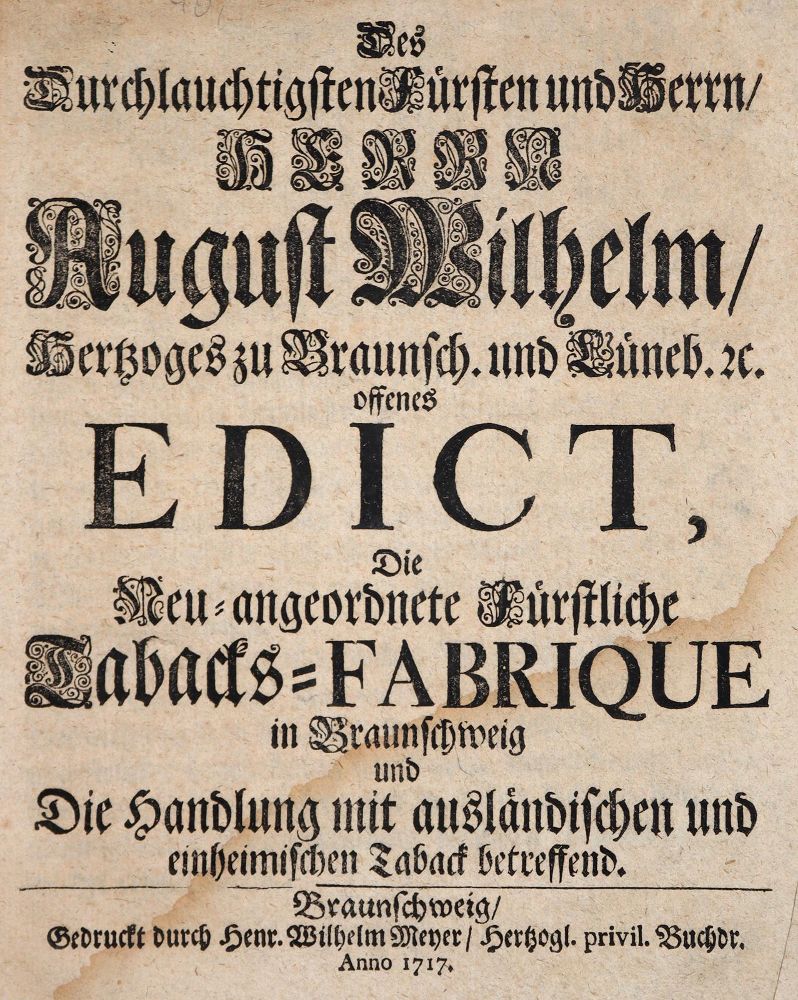 Des
Durchlauchtigsten Fürsten und Herrn/
HERRN
August Wilhelm/
Hertzoges zu Braunsch. und Lüneb. ꝛc.
offenes
EDICT,
Die
Neu-angeordnete Fürstliche
Tabacks-FABRIQUE
in Braunschweig
und
Die Handlung mit ausländischen und
einheimischen Taback betreffend.
Braunschweig/
Gedruckt durch Henr. Wilhelm Meyer/ Hertzogl. privil. Buchdr.
Anno 1717.